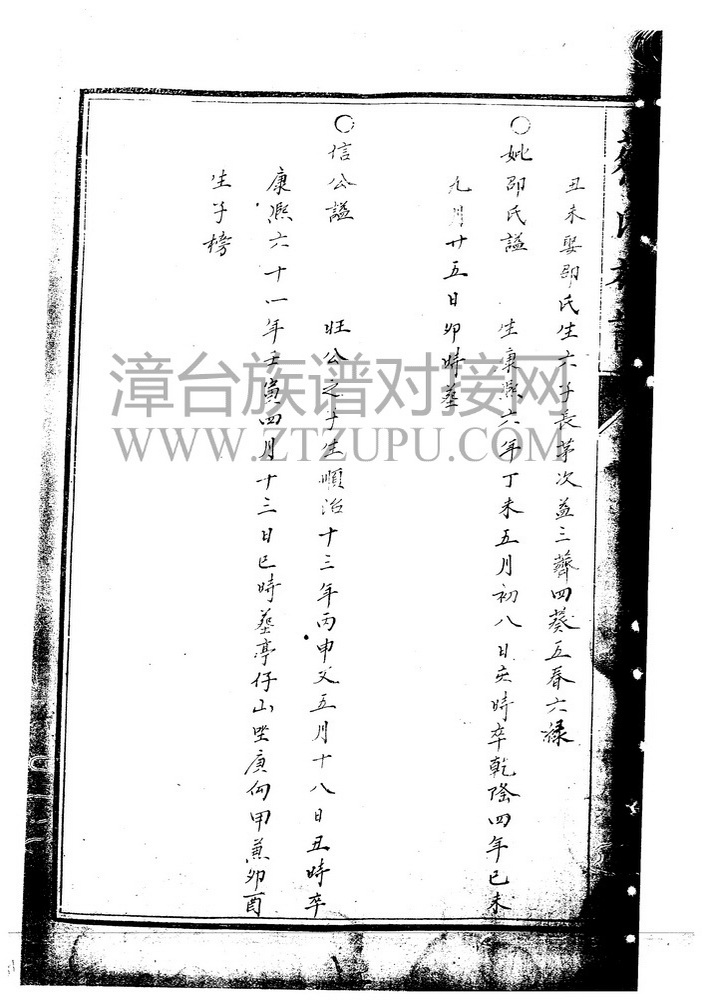 丑未娶邵氏生六子長茅次益三薺四葵五春六祿
〇妣邵氏諡 生康熙六年丁未五月初八日亥時卒乾隆四年己未
九月廿五日卯時墓
〇信公諡 旺公之子生順治十三年丙申又五月十八日丑時卒
康熙六十一年壬寅四月十三日巳時墓亭仔山坐庚向甲兼卯酉
生子榜
漳台族谱对接网
WWW.ZTZUPU.COM